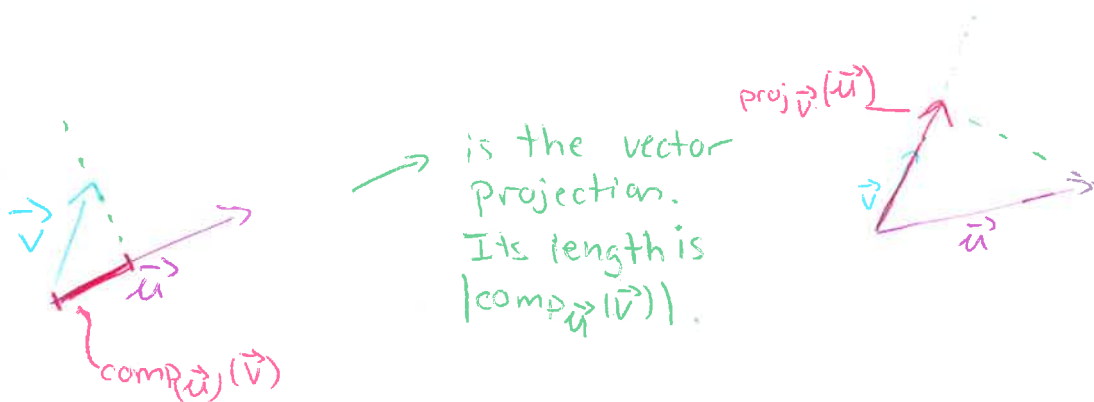 v⃗
u⃗
comp₍u⃗₎(v⃗)
is the vector
projection.
Its length is
|comp_u⃗(v⃗)|.
proj_v⃗(u⃗)
v⃗
u⃗